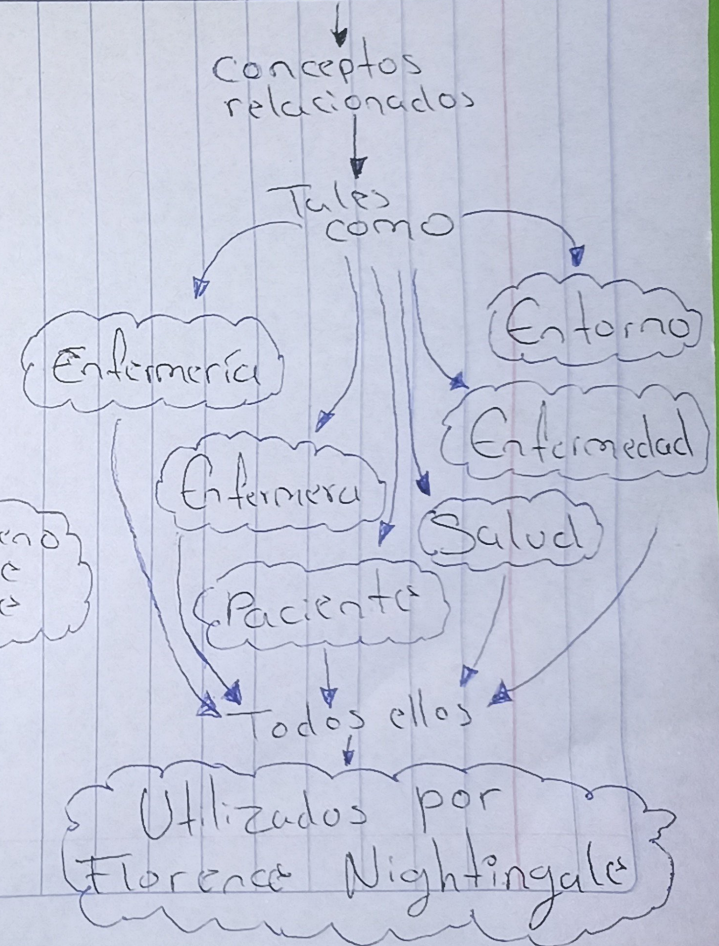 Conceptos
relacionados
Tales
como
Entorno
Enfermería
Enfermedad
Enfermera
Salud
Paciente
Todos ellos
Utilizados por
Florence Nightingale